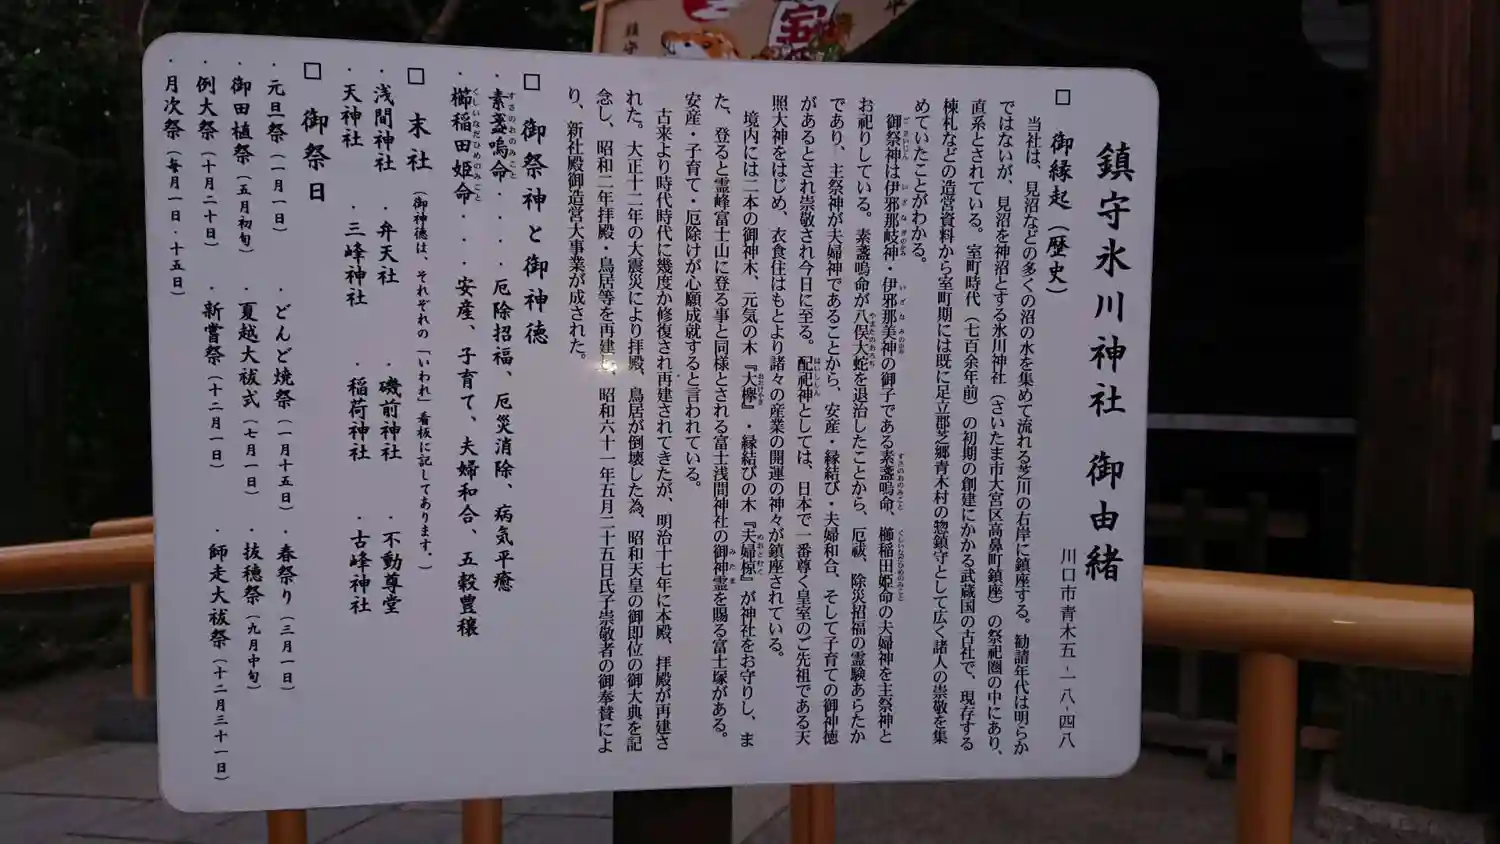 鎮守氷川神社 御由緒
川口市青木五-一八-四八
□ 御縁起（歴史）
当社は、見沼などの多くの沼の水を集めて流れる芝川の右岸に鎮座する。勧請年代は明らか
ではないが、見沼を神沼とする氷川神社（さいたま市大宮区高鼻町鎮座）の祭祀圏の中にあり、
直系とされている。室町時代（七百余年前）の初期の創建にかかる武蔵国の古社で、現存する
棟札などの造営資料から室町期には既に足立郡芝郷青木村の惣鎮守として広く諸人の崇敬を集
めていたことがわかる。
御祭神は伊邪那岐神・伊邪那美神の御子である素盞嗚命、櫛稲田姫命の夫婦神を主祭神と
お祀りしている。素盞嗚命が八俣大蛇を退治したことから、厄祓、除災招福の霊験あらたか
であり、主祭神が夫婦神であることから、安産・縁結び・夫婦和合、そして子育ての御神徳
があるとされ崇敬され今日に至る。配祀神としては、日本で一番尊く皇室のご先祖である天
照大神をはじめ、衣食住はもとより諸々の産業の開運の神々が鎮座されている。
境内には二本の御神木、元気の木『大欅』・縁結びの木『夫婦椋』が神社をお守りし、ま
た、登ると霊峰富士山に登る事と同様とされる富士浅間神社の御神霊を賜る富士塚がある。
安産・子育て・厄除けが心願成就すると言われている。
古来より時代時代に幾度か修復され再建されてきたが、明治十七年に本殿、拝殿が再建さ
れた。大正十二年の大震災により拝殿、鳥居が倒壊した為、昭和天皇の御即位の御大典を記
念し、昭和二年拝殿・鳥居等を再建し、昭和六十一年五月二十五日氏子崇敬者の御奉賛によ
り、新社殿御造営大事業が成された。
□ 御祭神と御神徳
・素盞嗚命・・・厄除招福、厄災消除、病気平癒
・櫛稲田姫命・・・安産、子育て、夫婦和合、五穀豊穣
□ 末社（御神徳は、それぞれの「いわれ」看板に記してあります。）
・浅間神社 ・弁天社 ・磯前神社 ・不動尊堂
・天神社 ・三峰神社 ・稲荷神社 ・古峰神社
□ 御祭日
・元旦祭（一月一日） ・どんど焼祭（一月十五日） ・春祭り（三月一日）
・御田植祭（五月初旬） ・夏越大祓式（七月一日） ・抜穂祭（九月中旬）
・例大祭（十月二十日） ・新嘗祭（十二月一日） ・師走大祓祭（十二月三十一日）
・月次祭（毎月一日・十五日）